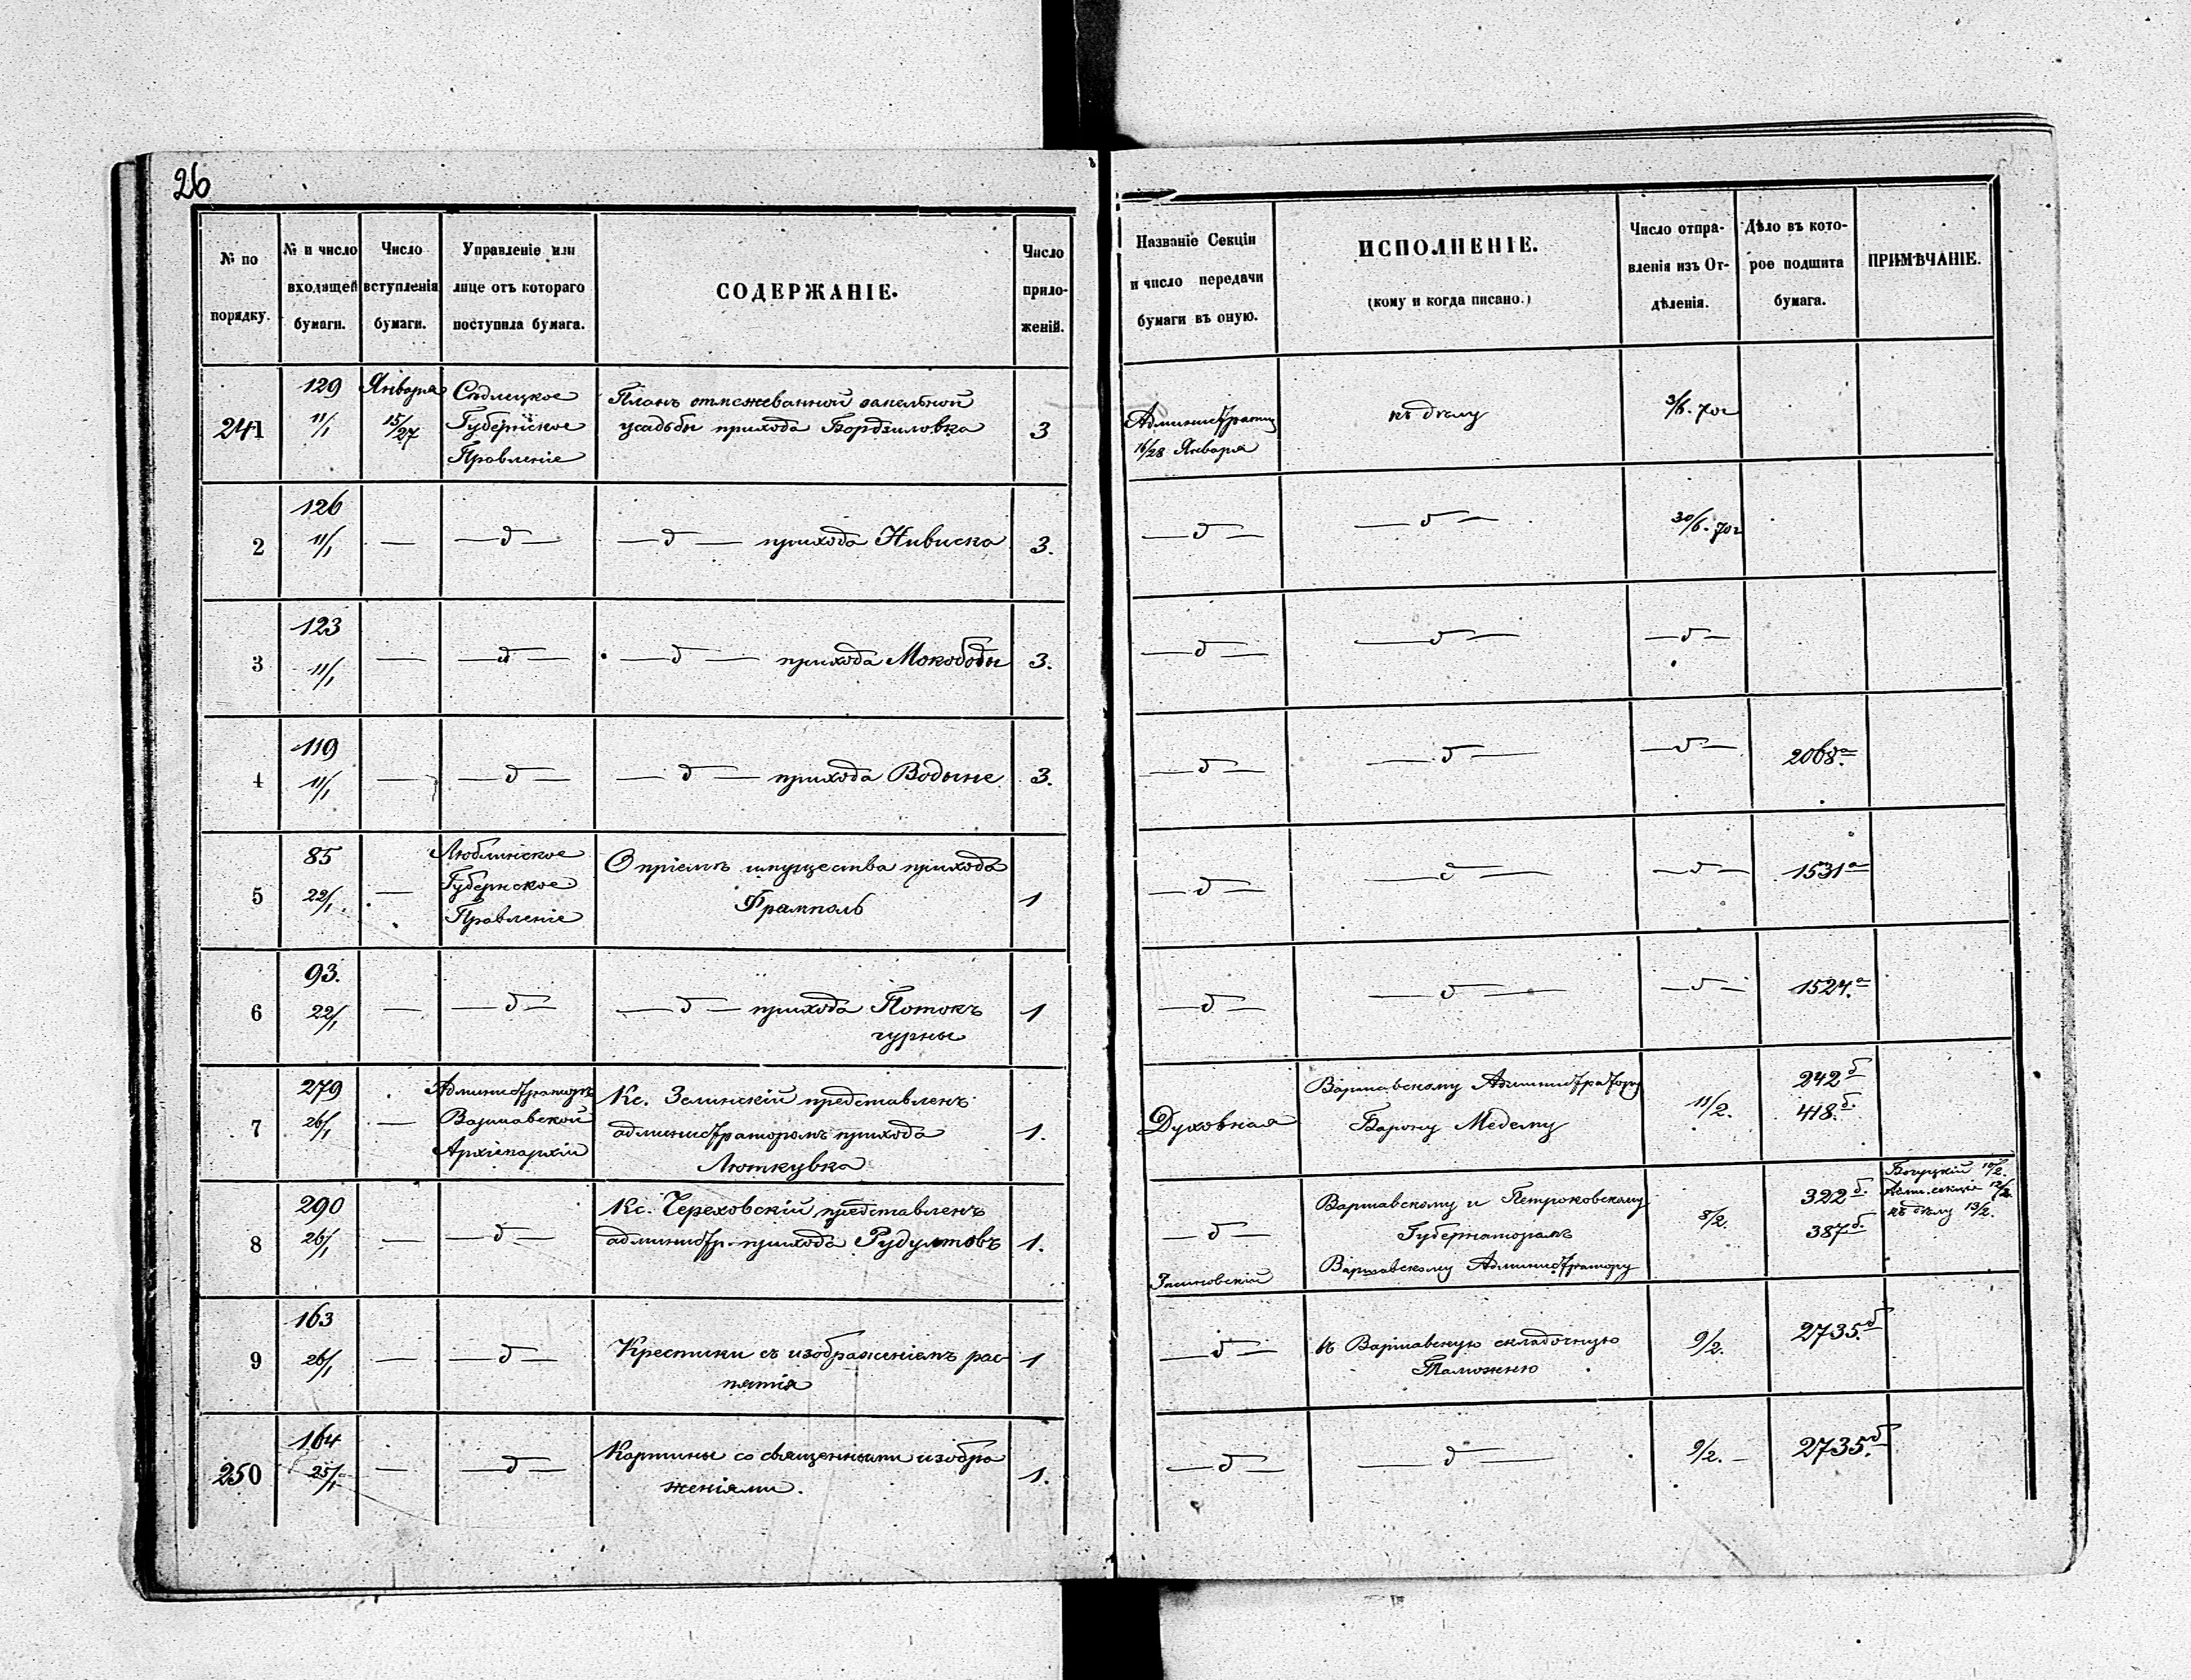 26
№ по порядку.
№ и число входящей бумаги.
Число вступленія бумаги.
Управленіе или лице отъ котораго поступила бумага.
СОДЕРЖАНІЕ.
Число приложеній.
Названіе Секціи и число передачи бумаги въ оную.
ИСПОЛНЕНІЕ.
(кому и когда писано.)
Число отправленія изъ Отдѣленія.
Дѣло въ которое подшита бумага.
ПРИМѢЧАНІЕ.
241
129
11/1
Января
15/27
Сѣдлецкое
Губернское
Правленіе
Планъ отмежеванной
усадьбы прихода Бордзиловка
3
16/28 Января
къ дѣлу
70г
2
126
11/1
—
— д —
— д — прихода Нивиска
3.
— д —
— д —
30/6. 70г
3
123
11/1
—
— д —
— д — прихода Мокободы
3.
— д —
— д —
— д —
4
119
11/1
—
— д —
— д — прихода Водыне
3.
— д —
— д —
— д —
2068а
5
85
22/1.
—
Люблинское
Губернское
Правленіе
О пріемѣ имущества прихода
Фрамполь
1
— д —
— д —
— д —
1531а
6
93.
22/1
—
— д —
— д — прихода Потокъ
гурны
1
— д —
— д —
— д —
1524.а
7
279
26/1
—
Администраторъ
Варшавской
Архіепархіи
Кс. Зелинскій представленъ
администраторомъ прихода
Люткувка
1.
Духовная
Варшавскому Администратору
Барону Медему
11/2.
242б
418.б.
8
290
26/1
—
— д —
Кс. Череховскій представленъ
администр. прихода Рудултовъ
1.
— д —
Варшавскому и Петроковскому
Губернаторамъ
Варшавскому Администратору
8/2.
322б.
387б.
Богуцкій
секція 12/2
къ дѣлу 13/2.
9
163
26/1
—
— д —
Крестики съ изображеніемъ рас-
пятія
1
— д —
въ Варшавскую складочную
Таможню
9/2.
2735.б
250
164
25/1
—
— д —
Картины со священными изобра
женіями.
1.
— д —
— д —
9/2. —
2735.б